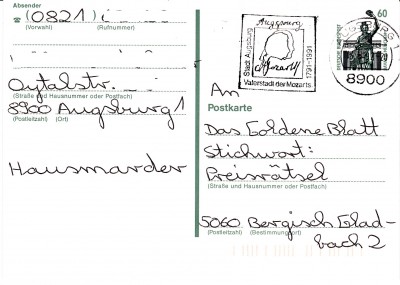 Absender
(0821)
(Vorwahl) (Rufnummer)
Oytalstr.
(Straße und Hausnummer oder Postfach)
8900 Augsburg 1
(Postleitzahl) (Ort)
Hausmarder
Augsburg
Stadt Augsburg
Mozart
1791-1991
Vaterstadt der Mozarts
60
8900
An
Postkarte
Das Goldene Blatt
Stichwort:
Preisrätsel
(Straße und Hausnummer oder Postfach)
5060 Bergisch Glad-
bach 2
(Postleitzahl) (Bestimmungsort)